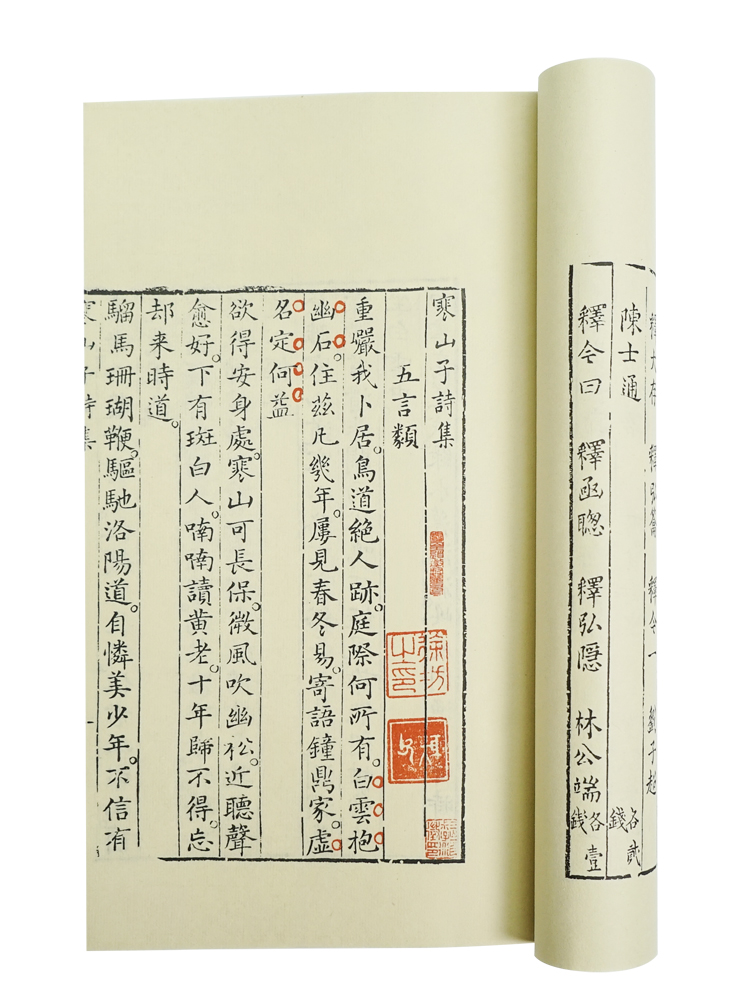 陳士通 各貳錢
釋令曰 釋函聰 釋弘隱 林公端 各壹錢
寒山子詩集
五言類
重巖我卜居。鳥道絕人跡。庭際何所有。白雲抱
幽石。住茲凡幾年。屢見春冬易。寄語鐘鼎家。虛
名定何益
欲得安身處。寒山可長保。微風吹幽松。近聽聲
愈好。下有斑白人。喃喃讀黃老。十年歸不得。忘
却来時道。
騮馬珊瑚鞭。驅馳洛陽道。自憐美少年。不信有
寒山子詩集
一
徐坊之印